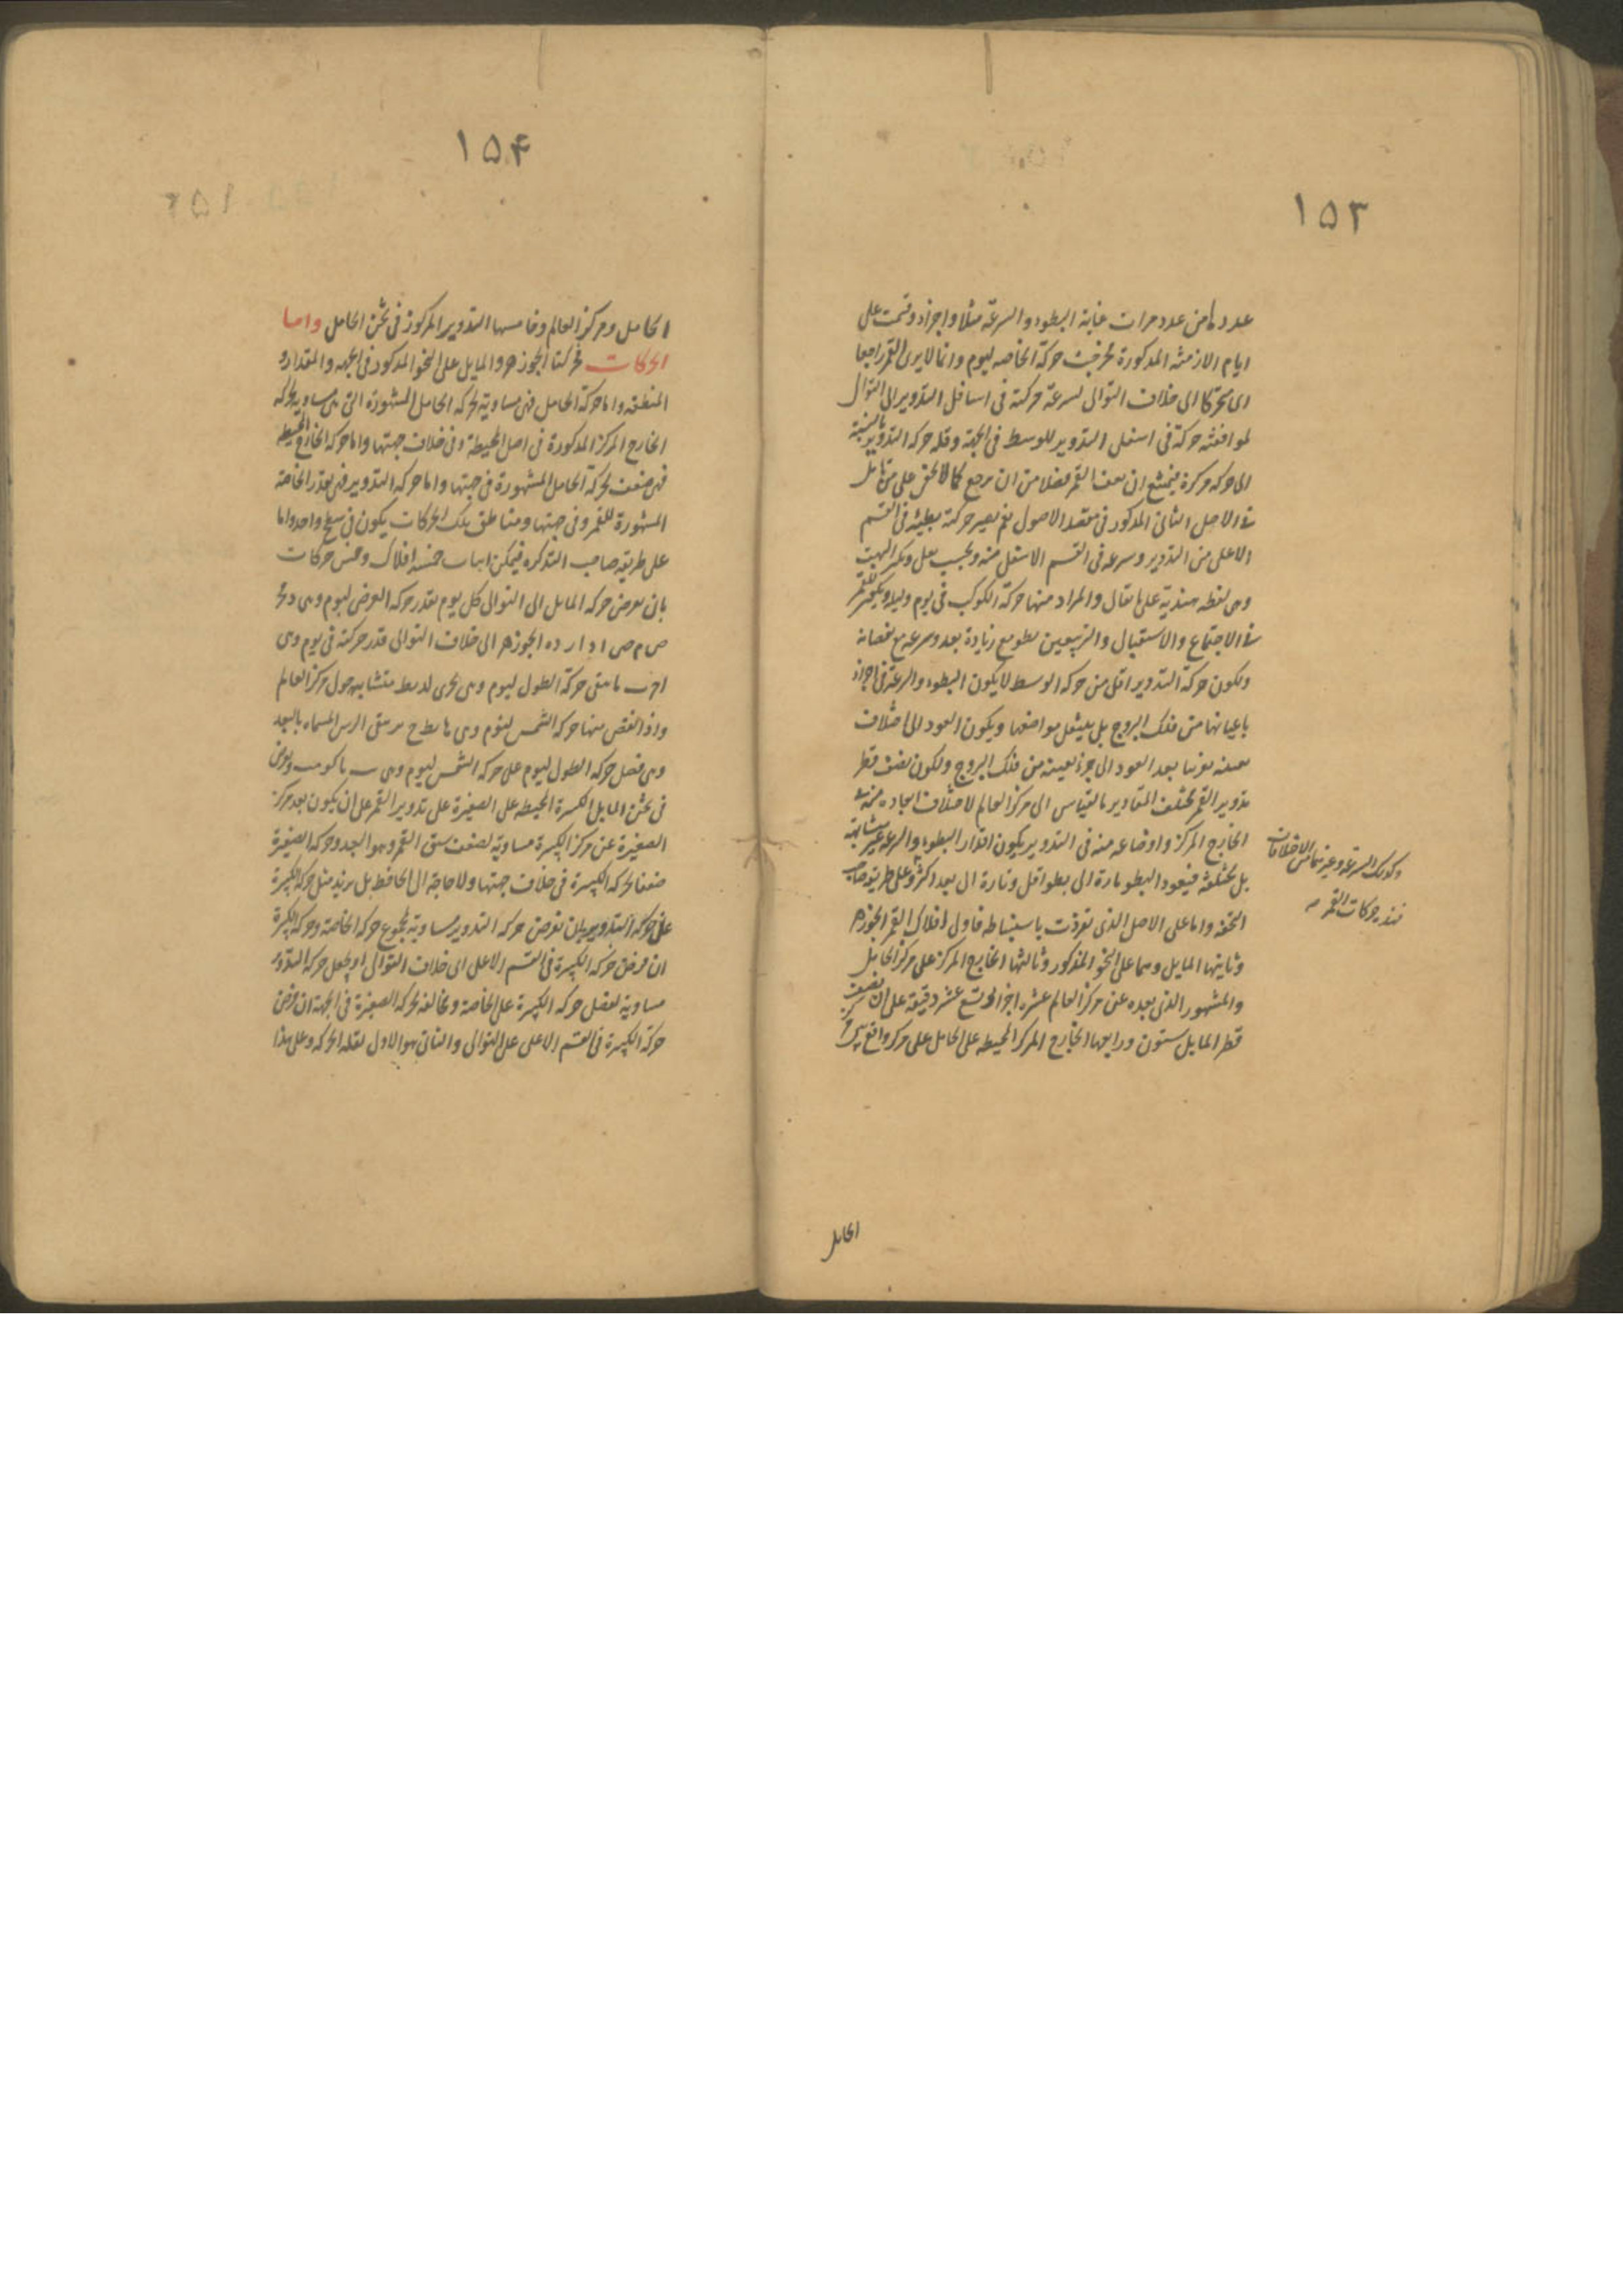 ١٥٣
عدد ها من عدد مرات غاية البطوء والسرعة مثلا واجزاء وقمت على
ايام الازمنة المذكورة لخرجت حركة الخاصه ليوم وانما لا يرى القمر راجعا
اى متحركا الى خلاف التوالى لسرعة حركته فى اسافل التدوير الى التوالى
لموافقة حركة فى اسفل التدوير للوسط فى الجهة وقلة حركه التدوير بالنسبة
الى حركه مركزه فيمتنع ان يقف القمر فضلا من ان يرجع كما لا يخفى على من تامل
فى الاصل الثانى المذكور فى مقصد الاصول نعم يصير حركته بطيئة فى القسم
الاعلى من التدوير وسرعه فى القسم الاسفل منه وبحسب
وهى لفظه هندية على ما يقال والمراد منها حركة الكوكب فى يوم وليله
فى الاجتماع والاستقبال والتربيعين بطو مع زيادة بعد وسرعه مع نقصانه
ولكون حركة التدوير اقل من حركه الوسط لا يكون البطوء والسرعة فى اجزاء
باعيانها من فلك البروج بل ينتقل مواضعها ويكون العود الى اختلاف
بعينه بعد العود الى جزء بعينه من فلك البروج ولكون نصف قطر
تدوير القمر مختلف المقادير بالقياس الى مركز العالم لاختلاف ابعاده
الخارج المركز واوضاعه منه فى التدوير يكون اقدار البطوء والسرعه غير متشابهة
بل مختلفة فيعود البطو تارة الى بطو اقل وتارة الى بعد اكثر وعلى طريقة صاحب
التحفه واما على الاصل الذى تفردت باستنباطه فاولى افلاك القمر الجوزهر
وثانيتها المايل وهما على النحو المذكور وثالثها الخارج المركز على مركز الحامل
والمشهور الذى بعده عن مركز العالم عشره اجزاء وتسع عشر دقيقة على ان نصف
قطر المايل ستون ورابعها الخارج المركز المحيطه على الحامل على مركز واقع بين
وكذلك السرعة وغيرهما من الاختلافات
فهذه حركات القمر
الحامل
١٥۴
الحامل ومركز العالم وخامسها التدوير المركوز فى ثخن الحامل واما
الحركات فحركتا الجوزهر والمايل على النحو المذكور فى الجهه والمقدار و
المنطقه واما حركة الحامل فهى مساوية لحركه الحامل المشهورة التى هى مساويه لحركه
الخارج المركز المذكورة فى اصل المحيطة وفى خلاف جهتها واما حركه الخارج المحيطه
فهى ضعف لحركة الحامل المشهورة فى جهتها واما حركه التدوير فهى بقدر الخاصة
المشهورة للقمر وفى جهتها ومناطق تلك الحركات يكون فى سطح واحد واما
على طريقه صاحب التذكره فيمكن اثبات خمسه افلاك وخمس حركات
بان يعرض حركه المايل الى التوالى كل يوم بقدر حركه العرض ليوم وهى
الجوزهر الى خلاف التوالى قدر حركته فى يوم وهى
ما بقى حركة الطول ليوم وهى متشابهه حول مركز العالم
واذا نقص منها حركه الشمس ليوم وهى المسماه بالبعد
وهى فضل حركه الطول ليوم على حركه الشمس ليوم وهى
فى ثخن المايل الكبيرة المحيطه على الصغيرة على تدوير القمر على ان يكون بعد مركز
الصغيرة عن مركز الكبيرة مساوية لنصف القمر وهو البعد وحركه الصغيرة
ضعف لحركه الكبيرة فى خلاف جهتها ولا حاجة الى الحافظه بل يزيد مثل حركه الكبيرة
على حركه التدوير بان نفرض حركه التدوير مساوية لمجموع حركه الخاصة وحركه الكبيرة
ان فرض حركه الكبيرة فى القسم الاعلى الى خلاف التوالى او يجعل حركه التدوير
مساوية لفضل حركه الكبيرة على الخاصة ومخالفه لحركه الصغيرة فى الجهة ان فرض
حركة الكبيرة فى القسم الاعلى على التوالى والثانى هو الاول لقله الحركه وعلى هذا